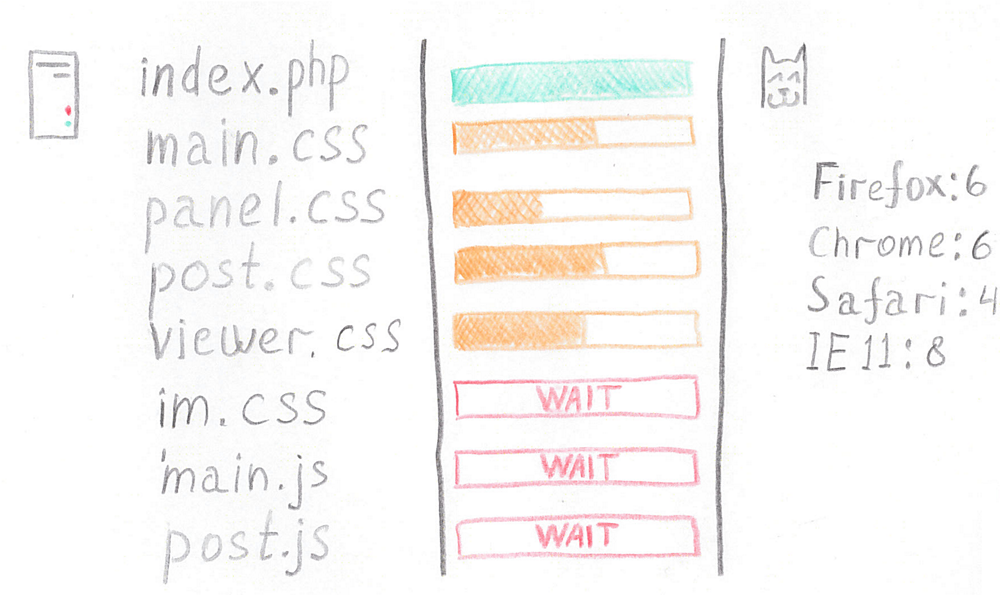 index.php
main.css
panel.css
post.css
viewer.css
im.css
main.js
post.js
WAIT
WAIT
WAIT
Firefox:6
Chrome:6
Safari:4
IE11:8